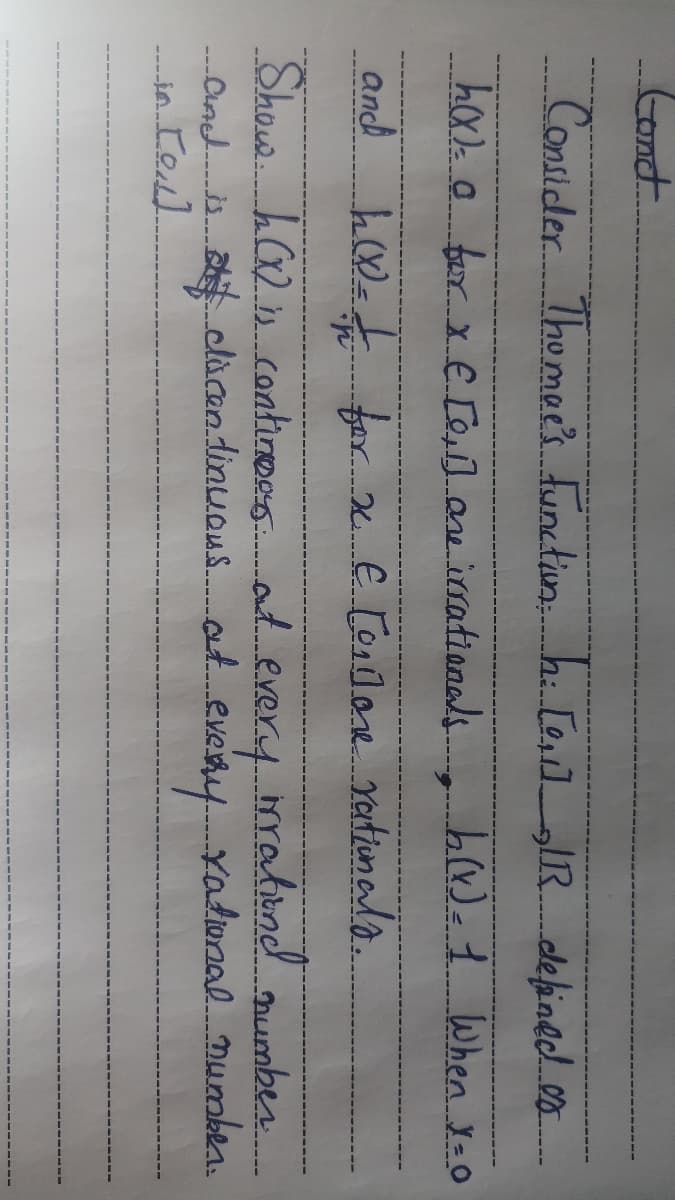 Cont
Consider Thomae's function: h: [0,1] → IR defined as
h(x) = 0 for x ∈ [0,1] are irrationals, h(x) = 1 When x=0
and h(x) = 1/n for x ∈ [0,1] are rationals.
Show h(x) is continoos at every irrational number
and is discontinuous at every rational number.
in [0,1]